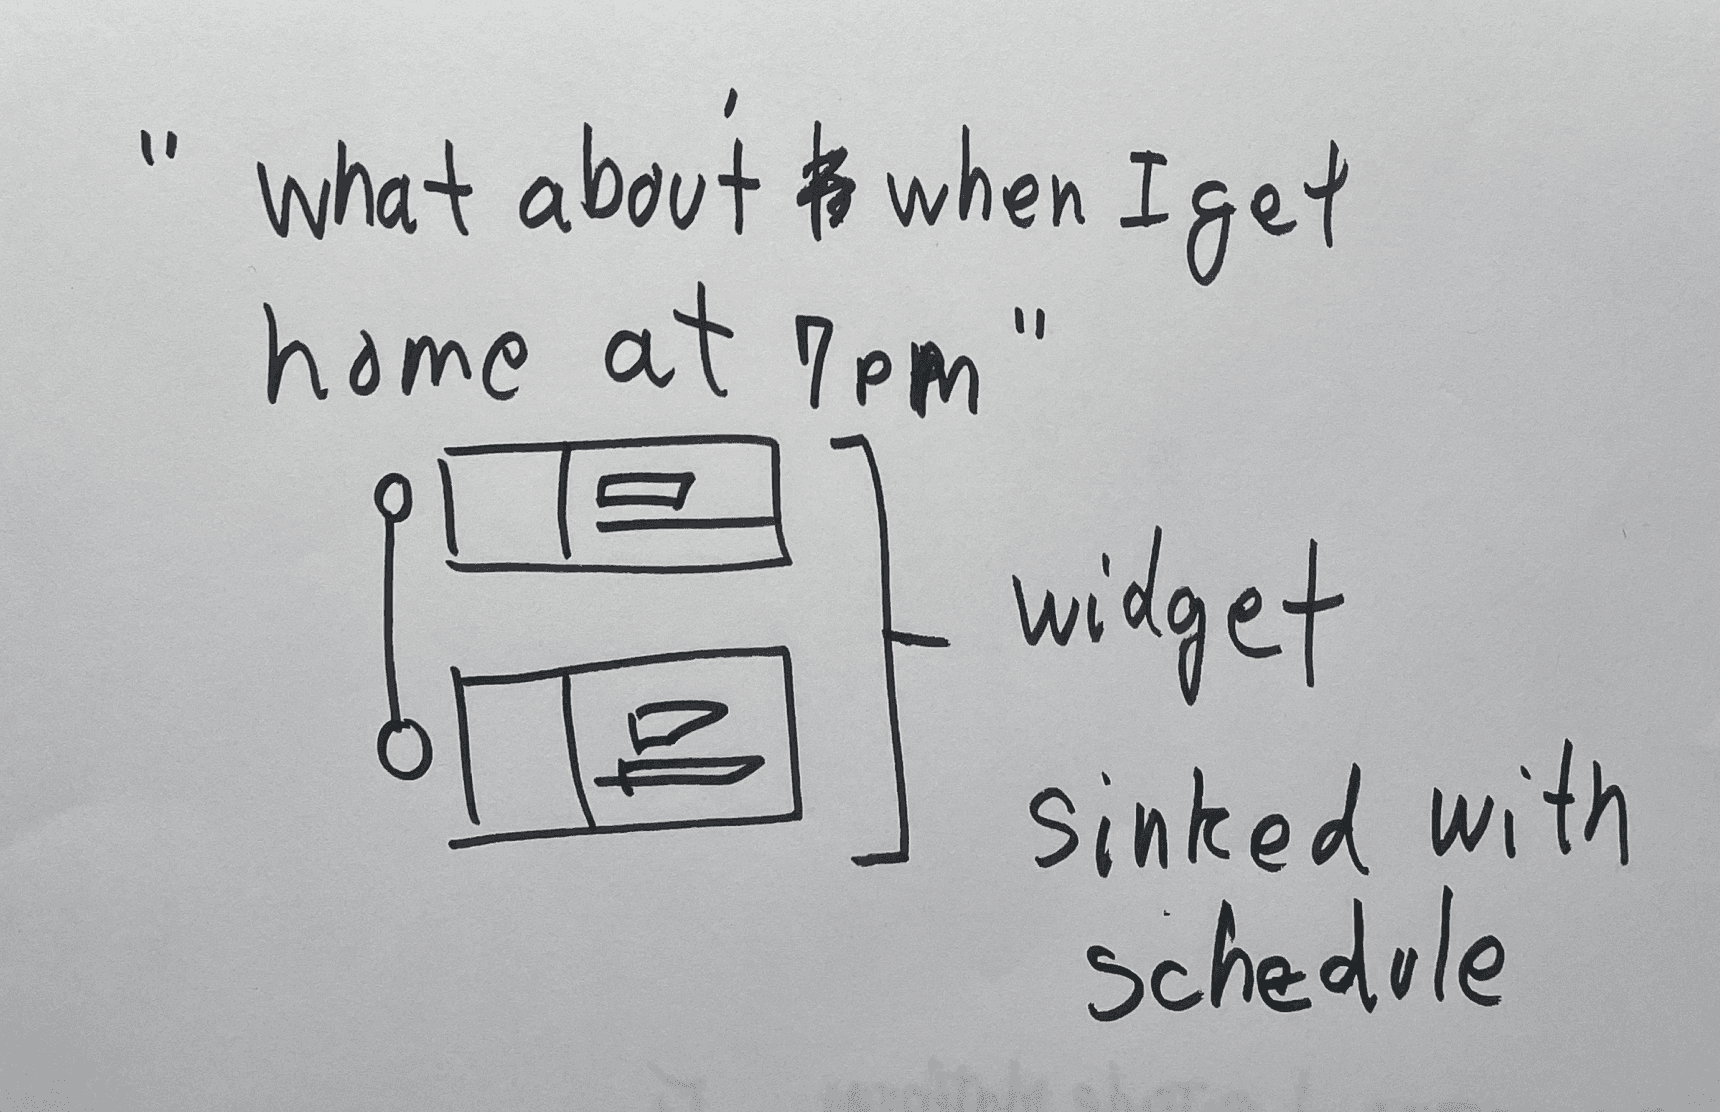 " what about when I get
home at 7pm "
widget
sinked with
schedule